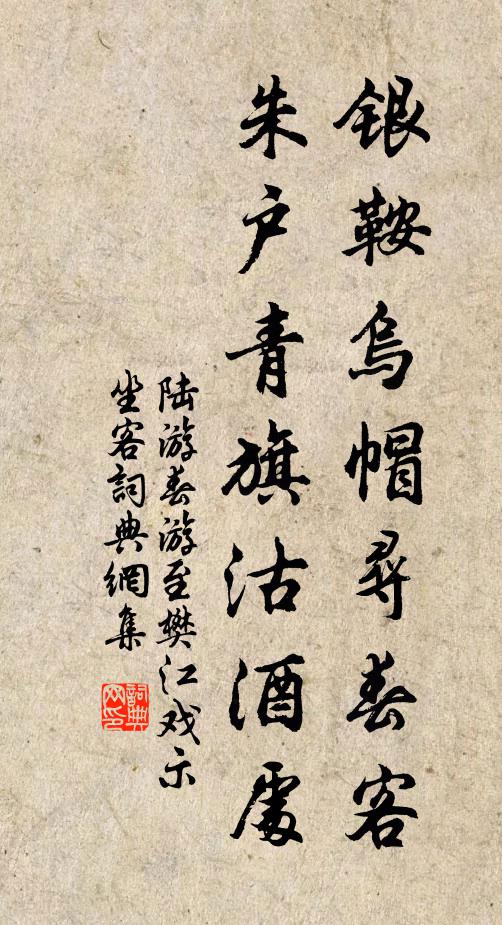 银鞍乌帽尋春客
朱户青旗沽酒處
陆游春游至樊江戏示
坐客詞典網集
詞典
网印